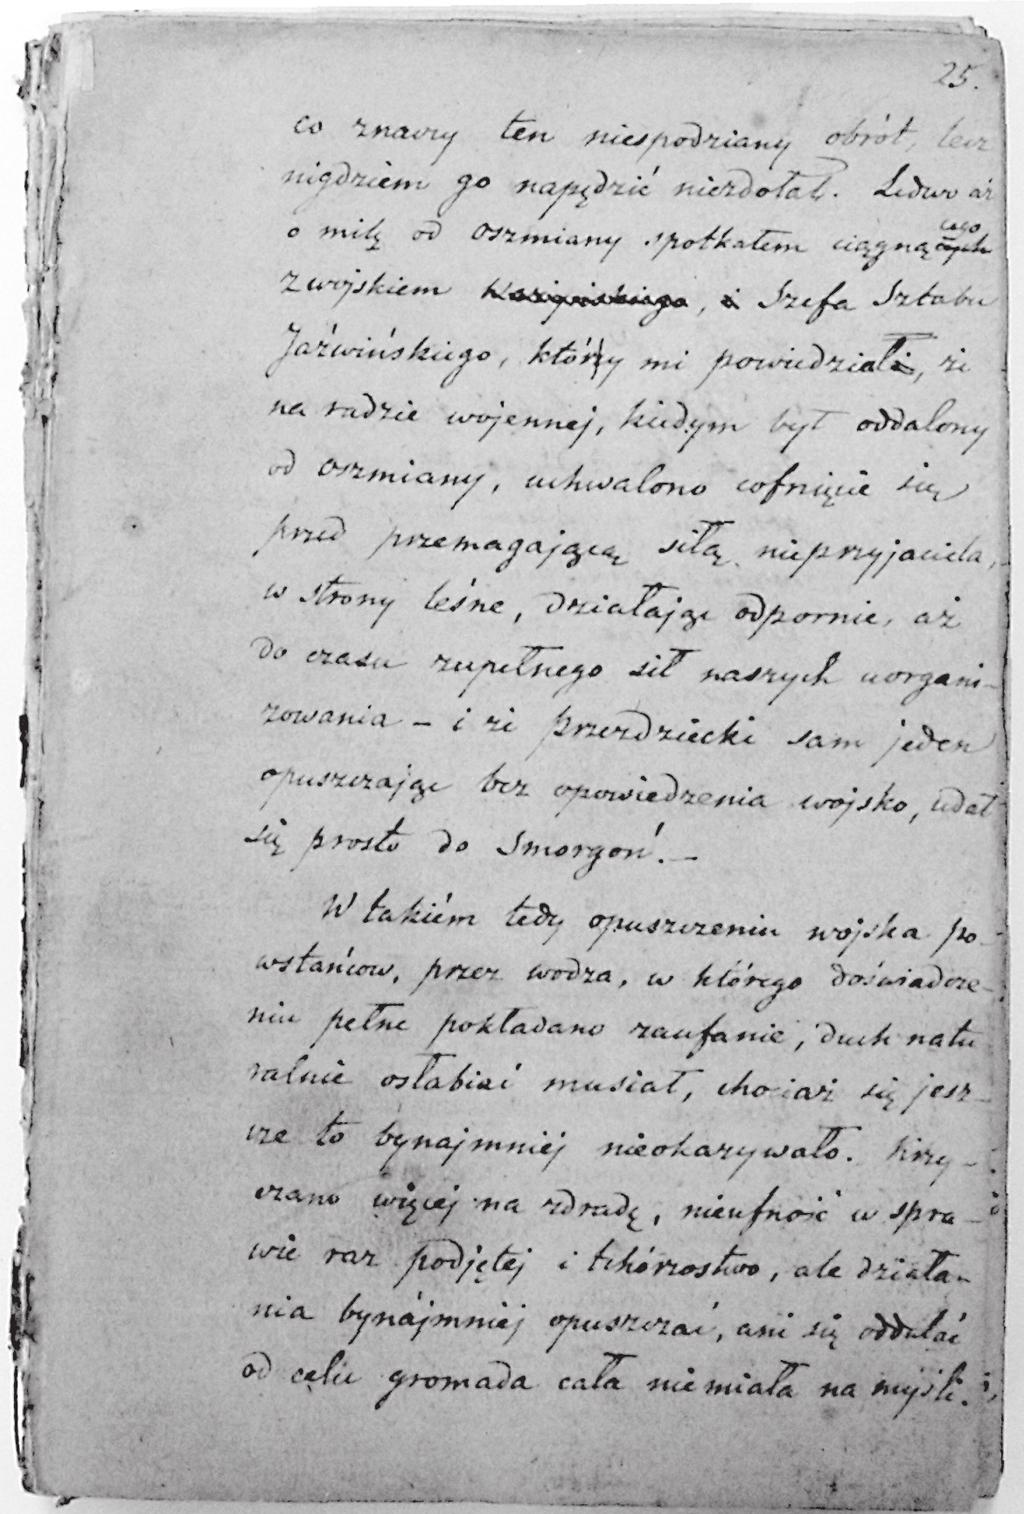 25.
co znaczy ten niespodziany obrót, lecz
nigdziem go napędzić niezdołał. Ledwo aż
o milę od Oszmiany spotkałem ciągnącego
z wojskiem, i Szefa Sztabu
Jaźwińskiego, który mi powiedział, że
na radzie wojennej, kiedym był oddalony
od Oszmiany, uchwalono cofnięcie się
przed przemagającą siłą nieprzyjaciela,
w strony leśne, działając odpornie, aż
do czasu zupełnego sił naszych uorgani-
zowania – i że Przezdziecki sam jeden
opuszczając bez opowiedzenia wojsko, udał
się prosto do Smorgoń. –
W takiém tedy opuszczeniu wojska po-
wstańcow, przez wodza, w którego doświadcze-
niu pełne pokładano zaufanie, duch natu
ralnie osłabiać musiał, chociaż się jesz-
cze to bynajmniej nieokazywało. Krzy-
czano więcej na zdradę, nieufność w spra-
wie raz podjętej i tchórzostwo, ale działa-
nia bynajmniej opuszczać, ani się oddalać
od celu gromada cała nie miała na myśli.